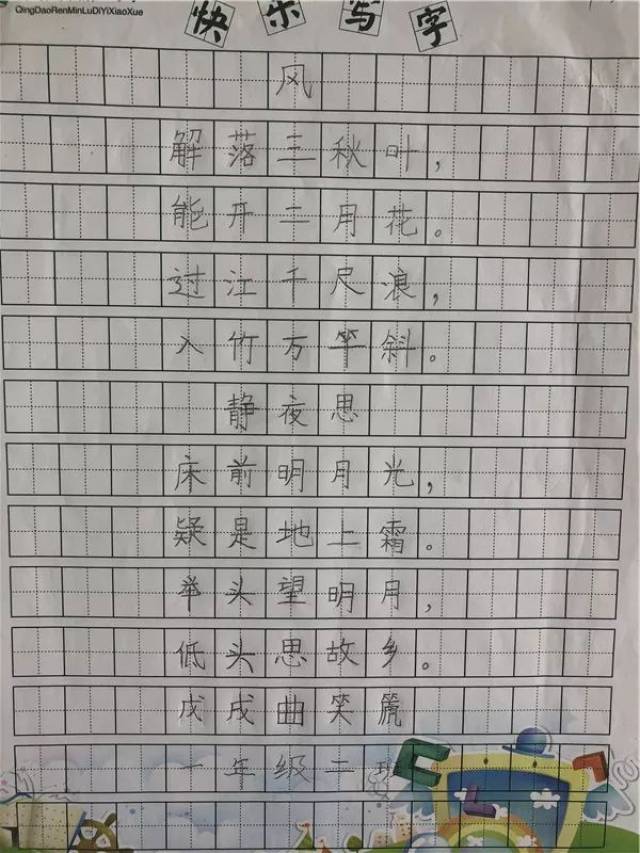 QingDaoRenMinLuDiYiXiaoXue
快乐写字
风
解落三秋叶，
能开二月花。
过江千尺浪，
入竹万竿斜。
静夜思
床前明月光，
疑是地上霜。
举头望明月，
低头思故乡。
戊戌曲笑篪
一年级二班